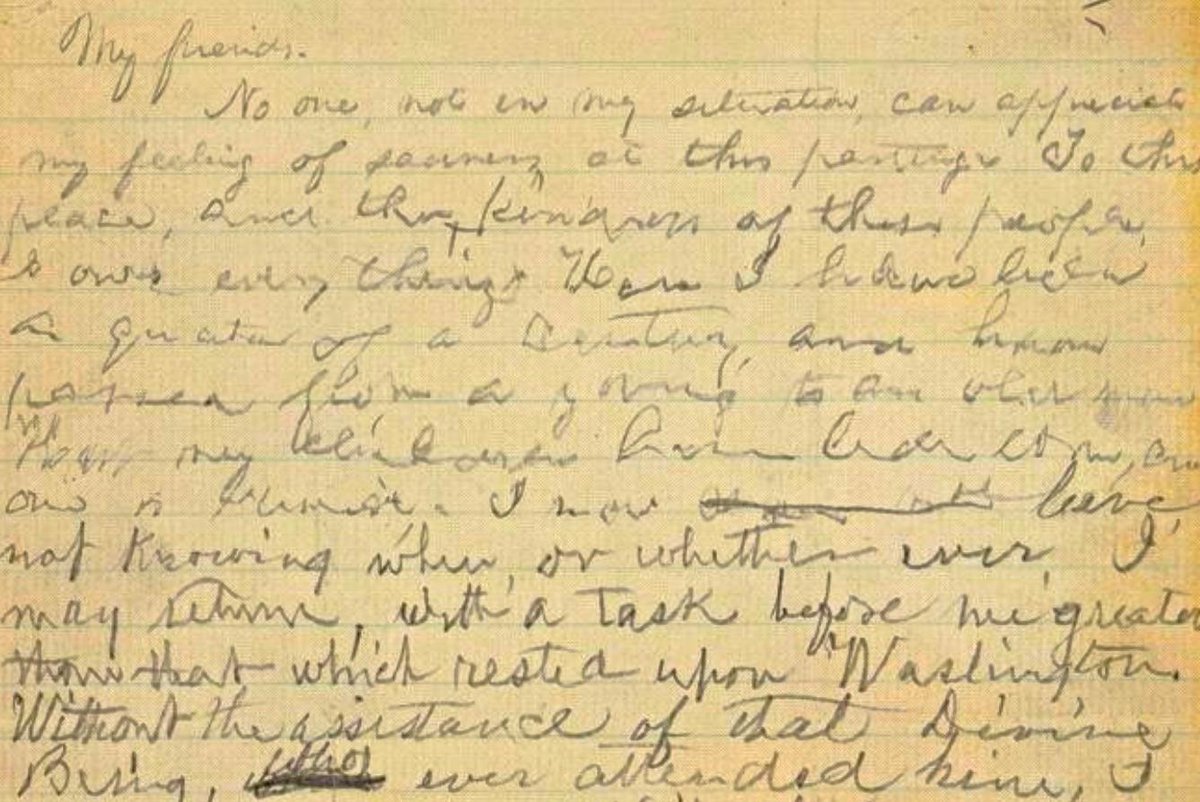 My friends.
No one, not in my situation, can appreciate
my feeling of sadness at this parting. To this
place, and the kindness of these people,
I owe every thing. Here I have been
a quarter of a century, and have
passed from a young to an old man
Here my children have been born, and
one is buried. I now leave,
not knowing when, or whether ever, I
may return, with a task before me greater
than that which rested upon Washington.
Without the assistance of that Divine
Being, who ever attended him, I